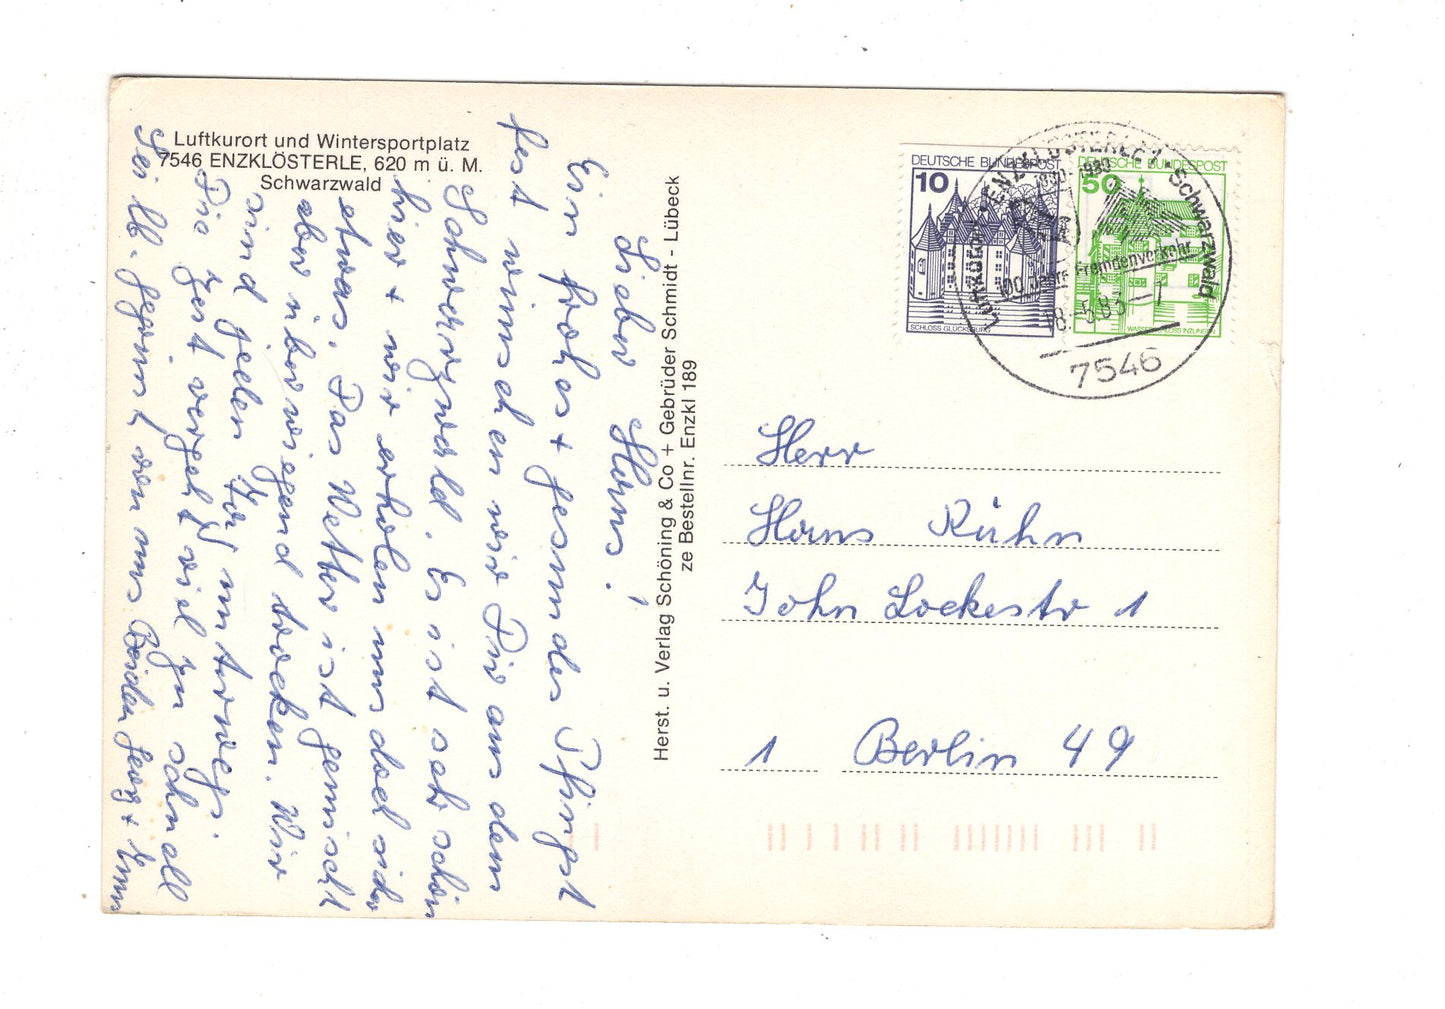 Luftkurort und Wintersportplatz
7546 ENZKLÖSTERLE, 620 m ü. M.
Schwarzwald
Lieber Hans!
Ein frohes + gesundes Pfingst
fest wünschen wir Dir aus dem
Schwarzwald. Es ist sehr schön
hier + wir erholen uns doch sicher
etwas. Das Wetter ist gemischt
aber überwiegend trocken. Wir
sind jeden Tag unterwegs.
Die Zeit vergeht viel zu schnell
Sei lb. gegrüßt von uns Beiden Georg +
Herst. u. Verlag Schöning & Co + Gebrüder Schmidt - Lübeck
ze Bestellnr. Enzkl 189
DEUTSCHE BUNDESPOST
10
SCHLOSS GLÜCKSBURG
DEUTSCHE BUNDESPOST
50
WASSERSCHLOSS INZLINGEN
LUFTKURORT ENZKLÖSTERLE · Schwarzwald
100 Jahre Fremdenverkehr
18.-5.83-7
7546
Herr
Hans Kühn
John Lockestr 1
1 Berlin 49